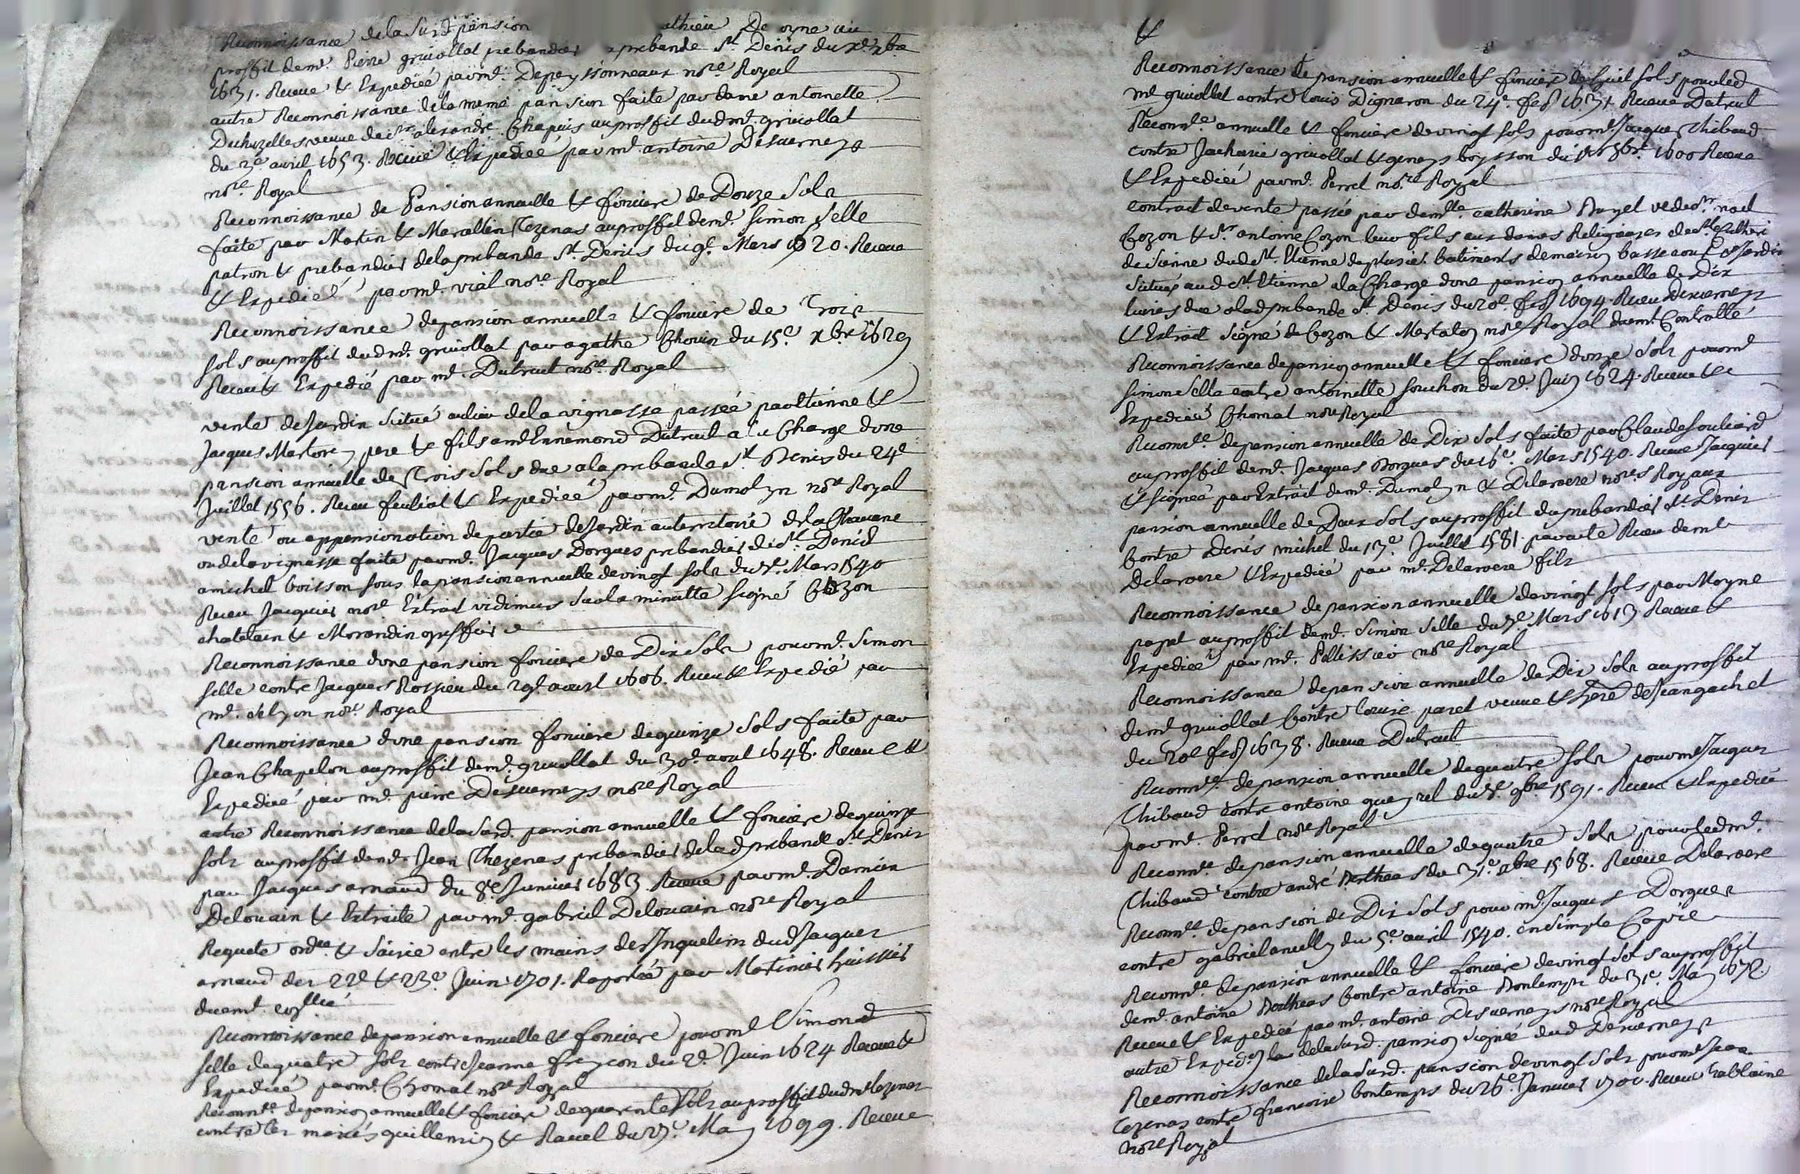 Reconnoissance de la Susd pansion
proffit de me. Pierre griuollat prebandier prebande St Denis du xbre
1631. Receue & Expediéé par me. Depeyssonneaux nore Royal
autre Reconnoissance de la meme pansion faite par dame antoinette
Duchezelles veuve de sr alexandre Chapuis au proffit dudme. griuollat
du 2e avril 1653. Receue & Expediéé par me. antoine Desuerneys
nore Royal
Reconnoissance de Pansion annuelle & fonciere de Douze Sols
faite par Martin & Marcellin Tezenas au proffit de me. Simon Selle
patron & prebandier de la prebande St. Denis du 9e. Mars 1620. Receue
& Expediéé par me. vial nore Royal
Reconnoissance de pansion annuelle & fonciere de Trois
sols au proffit dudme. griuollat par agathe Chouin du 15e xbre 1629
Receue & Expedié par me. Dutreul nore Royal
vente de Jardin scitué au lieu de la vignasse passéé par Etienne &
Jacques Martore pere & fils a me Ennemond Dutreul a la Charge dune
pansion annuelle de Trois Sols due a la prebande St. Denis du 24e
Juillet 1556. Receu & Expediéé par me. Dumolyn nore Royal
vente ou appensionation de partie de Jardin au territoire de la Chauane
ou de la vignasse faite par me. Jacques Dorgues prebandier de St. Denis
a michel boisson sous la pansion annuelle de vingt sols du Mars 1540
Receu Jacquier nore Extrait vidimus sur la minutte signé Cozon
chatelain & Morandin greffier
Reconnoissance dune pansion fonciere de Dix Sols pour me. Simon
Selle contre Jacques Rossieu du 29e avril 1606. Receu & Expedié par
me. delyon nore Royal
Reconnoissance dune pansion fonciere de quinze Sols faite par
Jean Chapelon au proffit de me. griuollat du 30e. aout 1648. Receue &
Expediéé par me. pierre Desuerneys nore Royal
autre Reconnoissance de la susd. pansion annuelle & fonciere de quinze
sols au proffit de me Jean Thezenas prebandier de lad prebande St. Denis
par Jacques arnaud du 8e Januier 1683 Receue par me. Damien
Delouain & Extraite par me. gabriel Delouain nore Royal
Requete ordce & Saisie entre les mains des Inquelins dud Jacques
arnaud des 22e & 23e Juin 1701. Raportéé par Martinier huissier
Reconnoissance de pansion annuelle & fonciere pour me Simond
Selle de quatre sols contre Jeanne françon du 2e. Juin 1624 Receue &
Expediéé par me. Chomat nore Royal
Reconnce de pansion annuelle & fonciere de quarente sols au proffit dudme tezenas
contre les mariés guillemin & Rauel du May 1699. Receue
&
Reconnoissance de pansion annuelle & fonciere de huit sols pour led
me griuollat contre Louis Dignaron du 24e. feb 1631. Receue Dutreul
Reconnce annuelle & fonciere de vingt sols pour me Jacques Thibaud
contre Jacharie griuollat & geneys boysson du 8bre. 1600 Receue
& Expediéé par me. Perret nore Royal
contract de vente passéé par demlle. catherine Bayel ve de sr. noel
Cozon & sr. antoine Cozon leur fils aux dames Religieuses de ste Catherine
de Sienne dud St. Etienne de plusieurs batiments de maison basse cour & Jardin
scitués aud St. Etienne a la Charge dune pansion annuelle de Dix
liures due a lad prebande St. Denis du 20e feb 1694 Receu Desuerneys
& Extrait signé de Cozon & Mestralon nore Royal
Reconnoissance de pansion annuelle & fonciere donze Sols pour me
Simon Selle contre antoinette Souchon du 2e. Juin 1624. Receue &
Expediéé Chomat nore Royal
Reconnce de pansion annuelle de Dix Sols faite par Claude Souliard
au proffit de me. Jacques Dorgues du 16e. Mars 1540. Receue Jacquier
& signéé par Extrait de me. Dumolyn & Delaroere nores Royaux
pansion annuelle de Deux Sols au proffit du prebandier St. Denis
contre Denis michel du 13e. Juillet 1581 par acte Receu de me
Delaroere & Expediéé par me. Delaroere fils
Reconnoissance de pansion annuelle de vingt sols par Moyne
payet au proffit de me. Simon Selle du Mars 1613 Receue &
Expediéé par me. Pellissier nore Royal
Reconnoissance de pansion annuelle de Dix Sols au proffit
de me griuollat Contre Louise paret veuue & here de Jean gachet
du 20e feb 1638. Receue Dutreul
Reconnce de pansion annuelle de quatre sols pour me Jacques
Thibaud contre antoine queyrel du 9bre 1591. Receue & Expediéé
par me. Perret nore Royal
Reconnce de pansion annuelle de quatre Sols pour led me.
Thibaud contre andré Bertheas du 31e. xbre 1568. Receue Delaroere
Reconnce de pansion de Dix Sols pour me Jacques Dorgues
contre gabriel du 5e. auril 1540. en simple Copie
Reconnce de pansion annuelle & fonciere de vingt sols au proffit
de me. antoine Bertheas Contre antoine Bontemps du 31e. May 1672
Receue & Expediéé par me. antoine Desuerneys nore Royal
autre Expedon de la susd. pansion signéé dud Desuerneys
Reconnoissance de la susd. pansion de vingt sols pour me Jean
tezenas contre francoise bontemps du 26e. Januier 1701. Receue tablaine
nore Royal